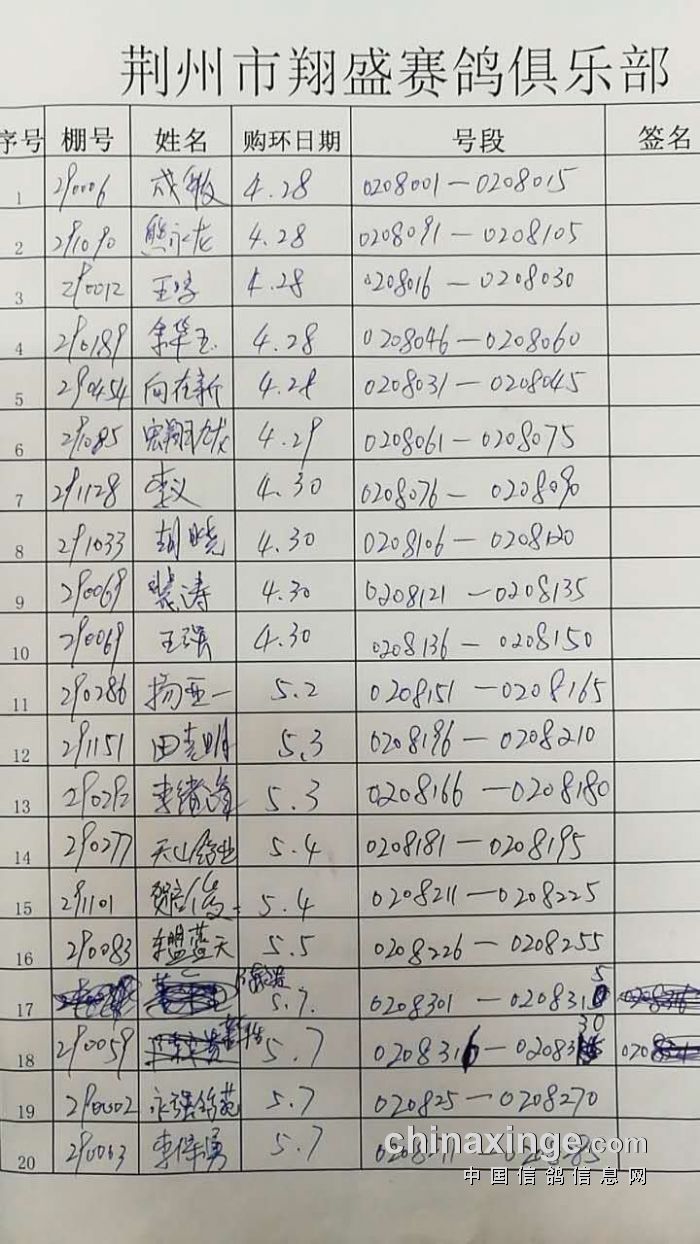 荆州市翔盛赛鸽俱乐部
序号 棚号 姓名 购环日期 号段 签名
1 290006 成敏 4.28 0208001—0208015
2 291090 熊永龙 4.28 0208091—0208105
3 290012 王 4.28 0208016—0208030
4 290189 余华玉 4.28 0208046—0208060
5 290454 向在新 4.28 0208031—0208045
6 291085 4.29 0208061—0208075
7 291128 李义 4.30 0208076—0208090
8 291033 胡晓 4.30 0208106—0208120
9 290069 裴涛 4.30 0208121—0208135
10 290069 王强 4.30 0208136—0208150
11 290286 杨亚一 5.2 0208151—0208165
12 291151 田克明 5.3 0208196—0208210
13 290292 李绪 5.3 0208166—0208180
14 290277 天山鸽业 5.4 0208181—0208195
15 291101 贺 5.4 0208211—0208225
16 290083 盟蓝天 5.5 0208226—0208255
17 5.7. 0208301—0208315
18 290059 5.7 0208316—0208330
19 290002 永强鸽苑 5.7 020825—0208270
20 290063 李 5.7
chinaxinge.com
中国信鸽信息网